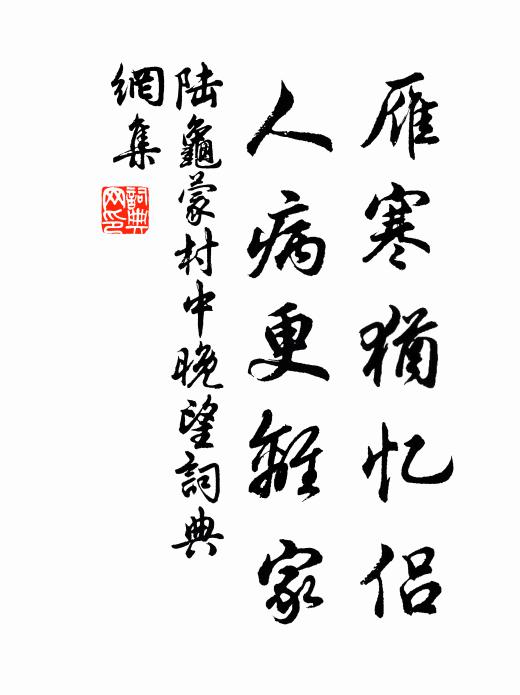 雁寒猶忆侣
人病更離家
陆龜蒙村中晚望詞典
網集
詞典网印